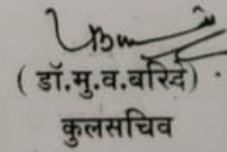 ( डॉ.मु.व.बरिदे) .
कुलसचिव